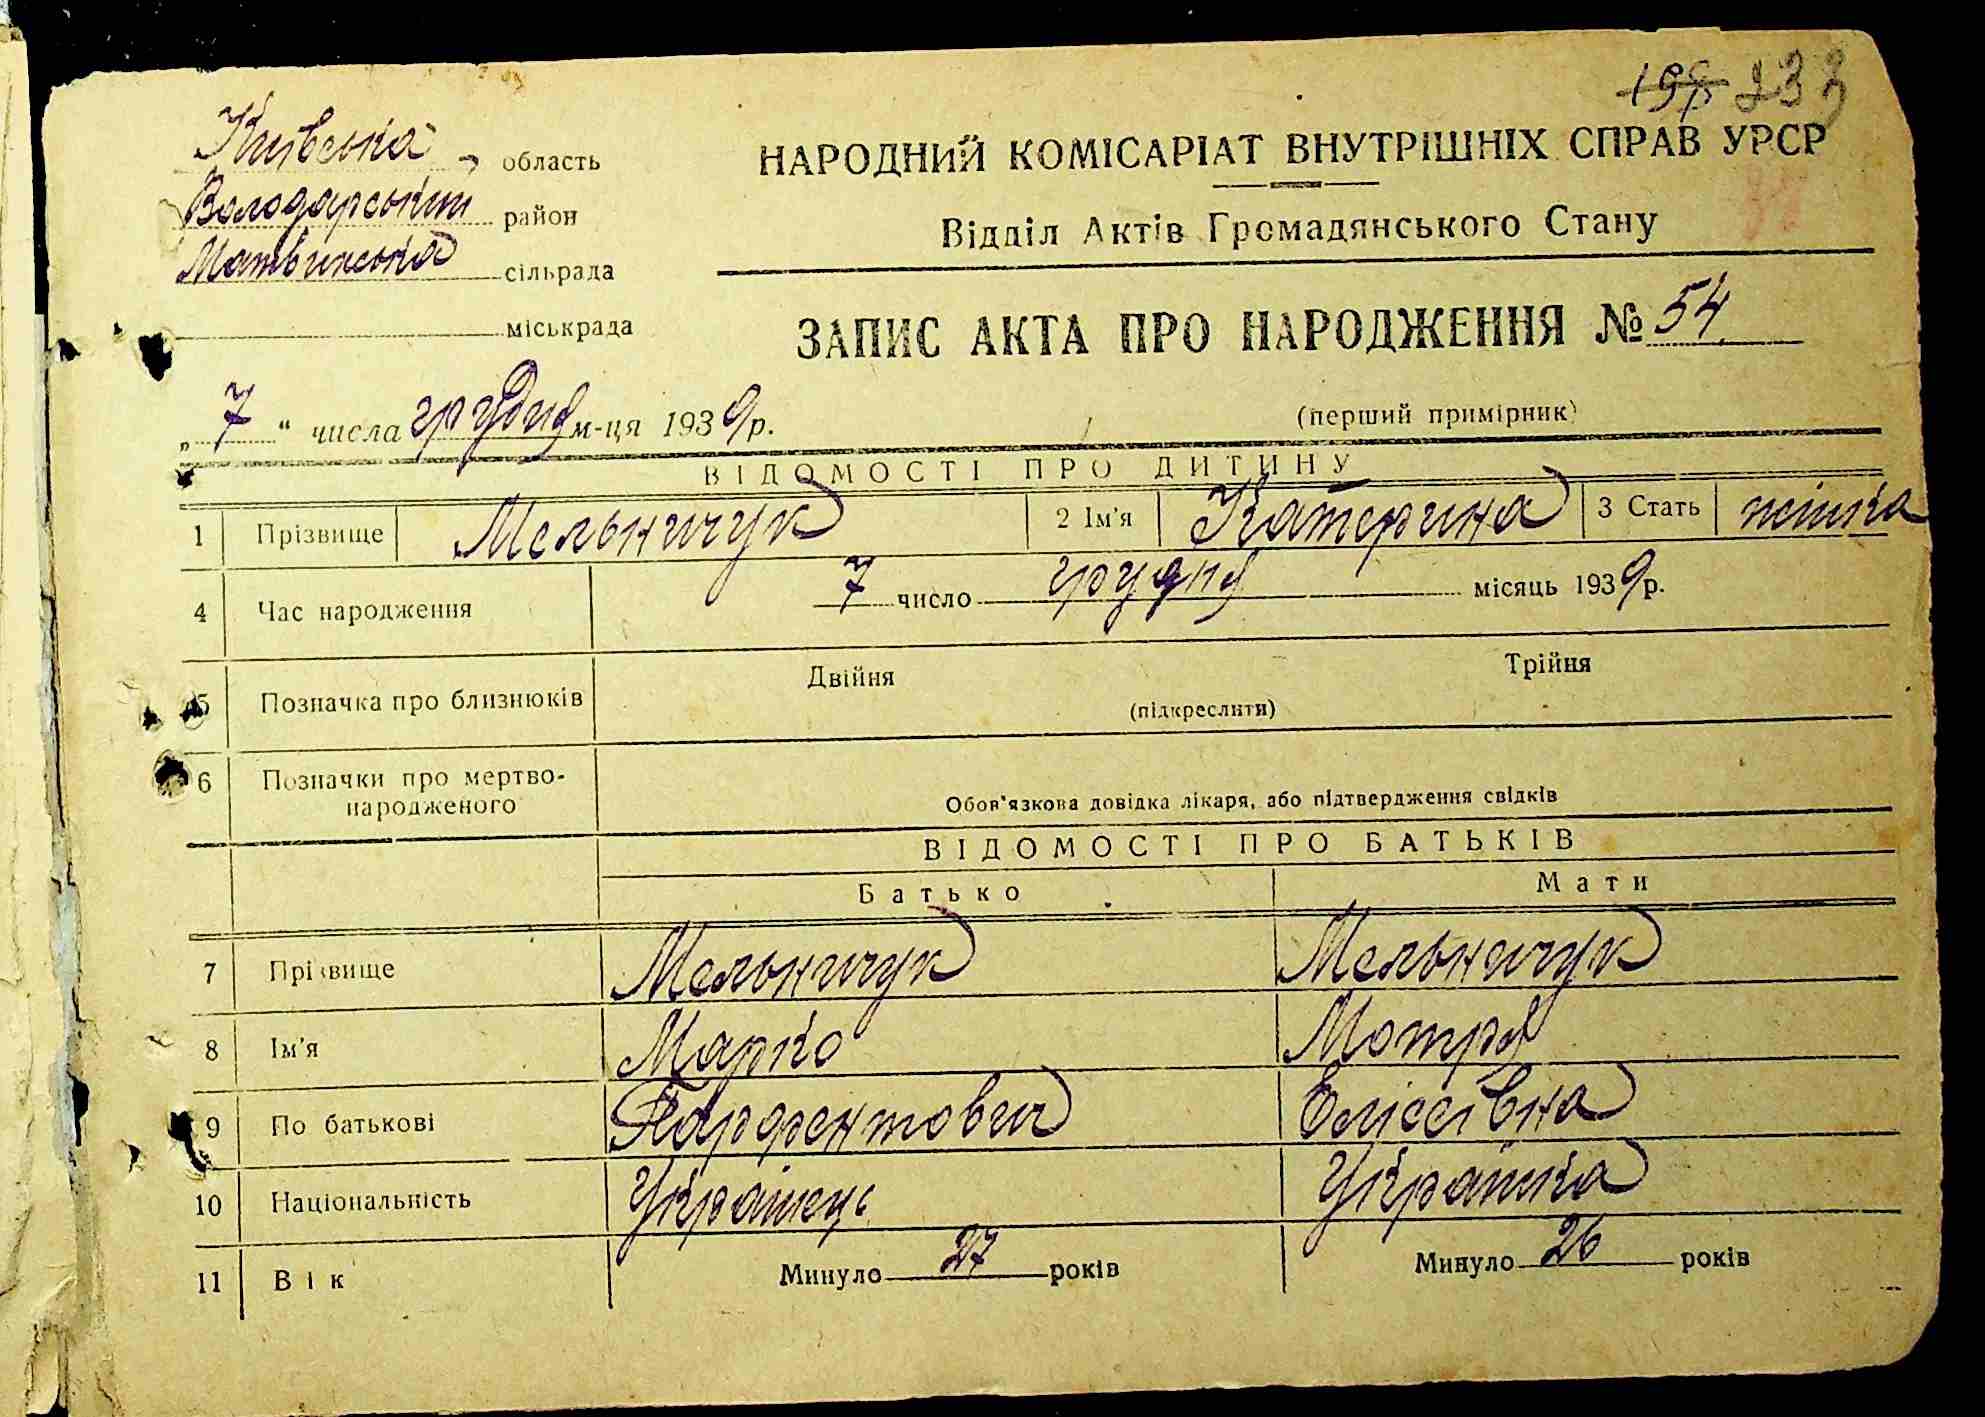 233
Київська область
Володарський район
Матвинська сільрада
міськрада
НАРОДНИЙ КОМІСАРІАТ ВНУТРІШНІХ СПРАВ УРСР
Відділ Актів Громадянського Стану
ЗАПИС АКТА ПРО НАРОДЖЕННЯ № 54
„ 7 “ числа грудня м-ця 1939 р.
(перший примірник)
ВІДОМОСТІ ПРО ДИТИНУ
1 Прізвище Мельничук 2 Ім'я Катерина 3 Стать жінка
4 Час народження 7 число грудня місяць 1939 р.
5 Позначка про близнюків Двійня Трійня
(підкреслити)
6 Позначки про мертво-
народженого Обов'язкова довідка лікаря, або підтвердження свідків
ВІДОМОСТІ ПРО БАТЬКІВ
Батько Мати
7 Прізвище Мельничук Мельничук
8 Ім'я Марко Мотря
9 По батькові Парфентович Елісеївна
10 Національність Українець Українка
11 Вік Минуло 27 років Минуло 26 років